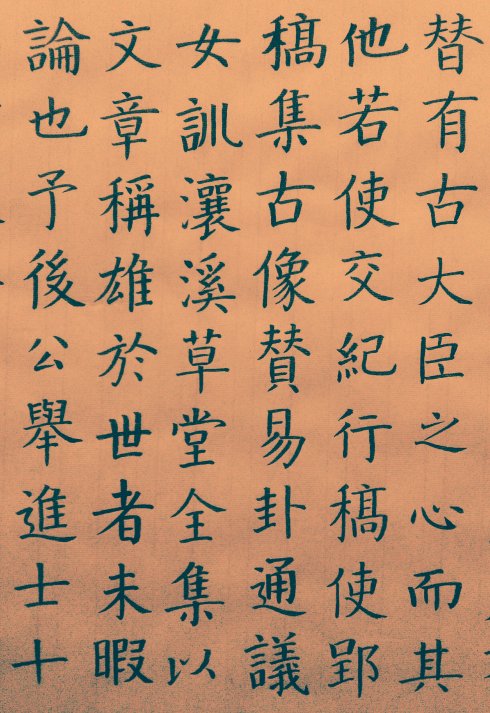 替有古大臣之心而其
他若使交紀行稿使郢
稿集古像賛易卦通議
女訓瀼溪草堂全集以
文章稱雄於世者未暇
論也予後公舉進士十